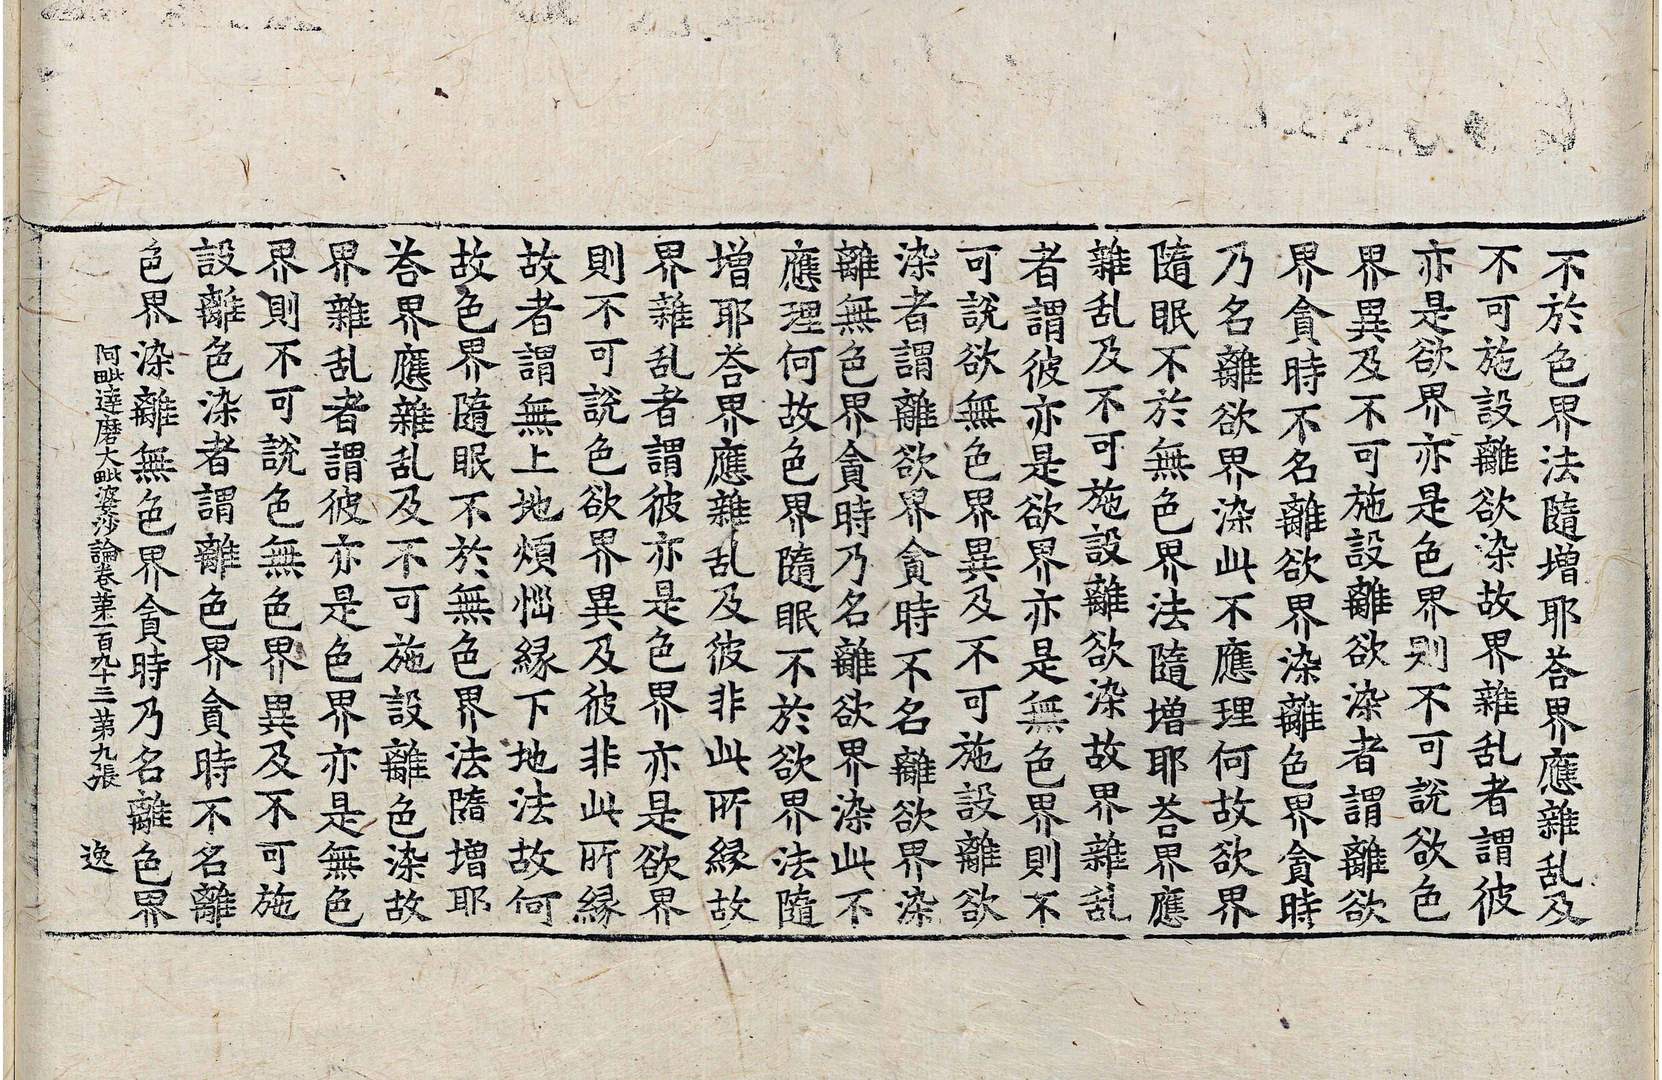 不於色界法隨增耶荅界應雜乱及
不可施設離欲染故界雜乱者謂彼
亦是欲界亦是色界則不可說欲色
界異及不可施設離欲染者謂離欲
界貪時不名離欲界染離色界貪時
乃名離欲界染此不應理何故欲界
隨眠不於無色界法隨增耶荅界應
雜乱及不可施設離欲染故界雜乱
者謂彼亦是欲界亦是無色界則不
可說欲無色界異及不可施設離欲
染者謂離欲界貪時不名離欲界染
離無色界貪時乃名離欲界染此不
應理何故色界隨眠不於欲界法隨
增耶荅界應雜乱及彼非此所縁故
界雜乱者謂彼亦是色界亦是欲界
則不可說色欲界異及彼非此所縁
故者謂無上地煩惱縁下地法故何
故色界隨眠不於無色界法隨增耶
荅界應雜乱及不可施設離色染故
界雜乱者謂彼亦是色界亦是無色
界則不可說色無色界異及不可施
設離色染者謂離色界貪時不名離
色界染離無色界貪時乃名離色界
阿毗達磨大毗婆沙論卷第一百九十二 第九張 逸